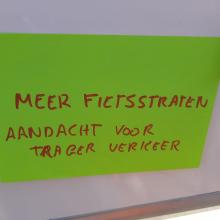 MEER FIETSSTRATEN
AANDACHT VOOR
TRAGER VERKEER